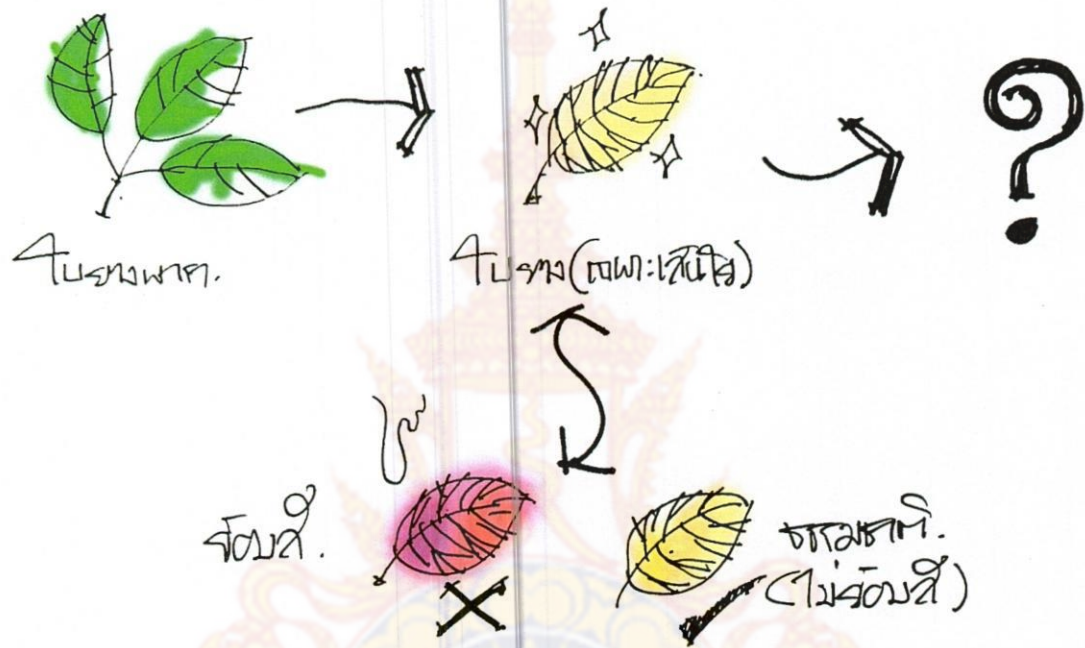 ใบยางพารา.
ใบยาง(เฉพาะเส้นใย)
?
ย้อมสี.
ธรรมชาติ.
(ไม่ย้อมสี)